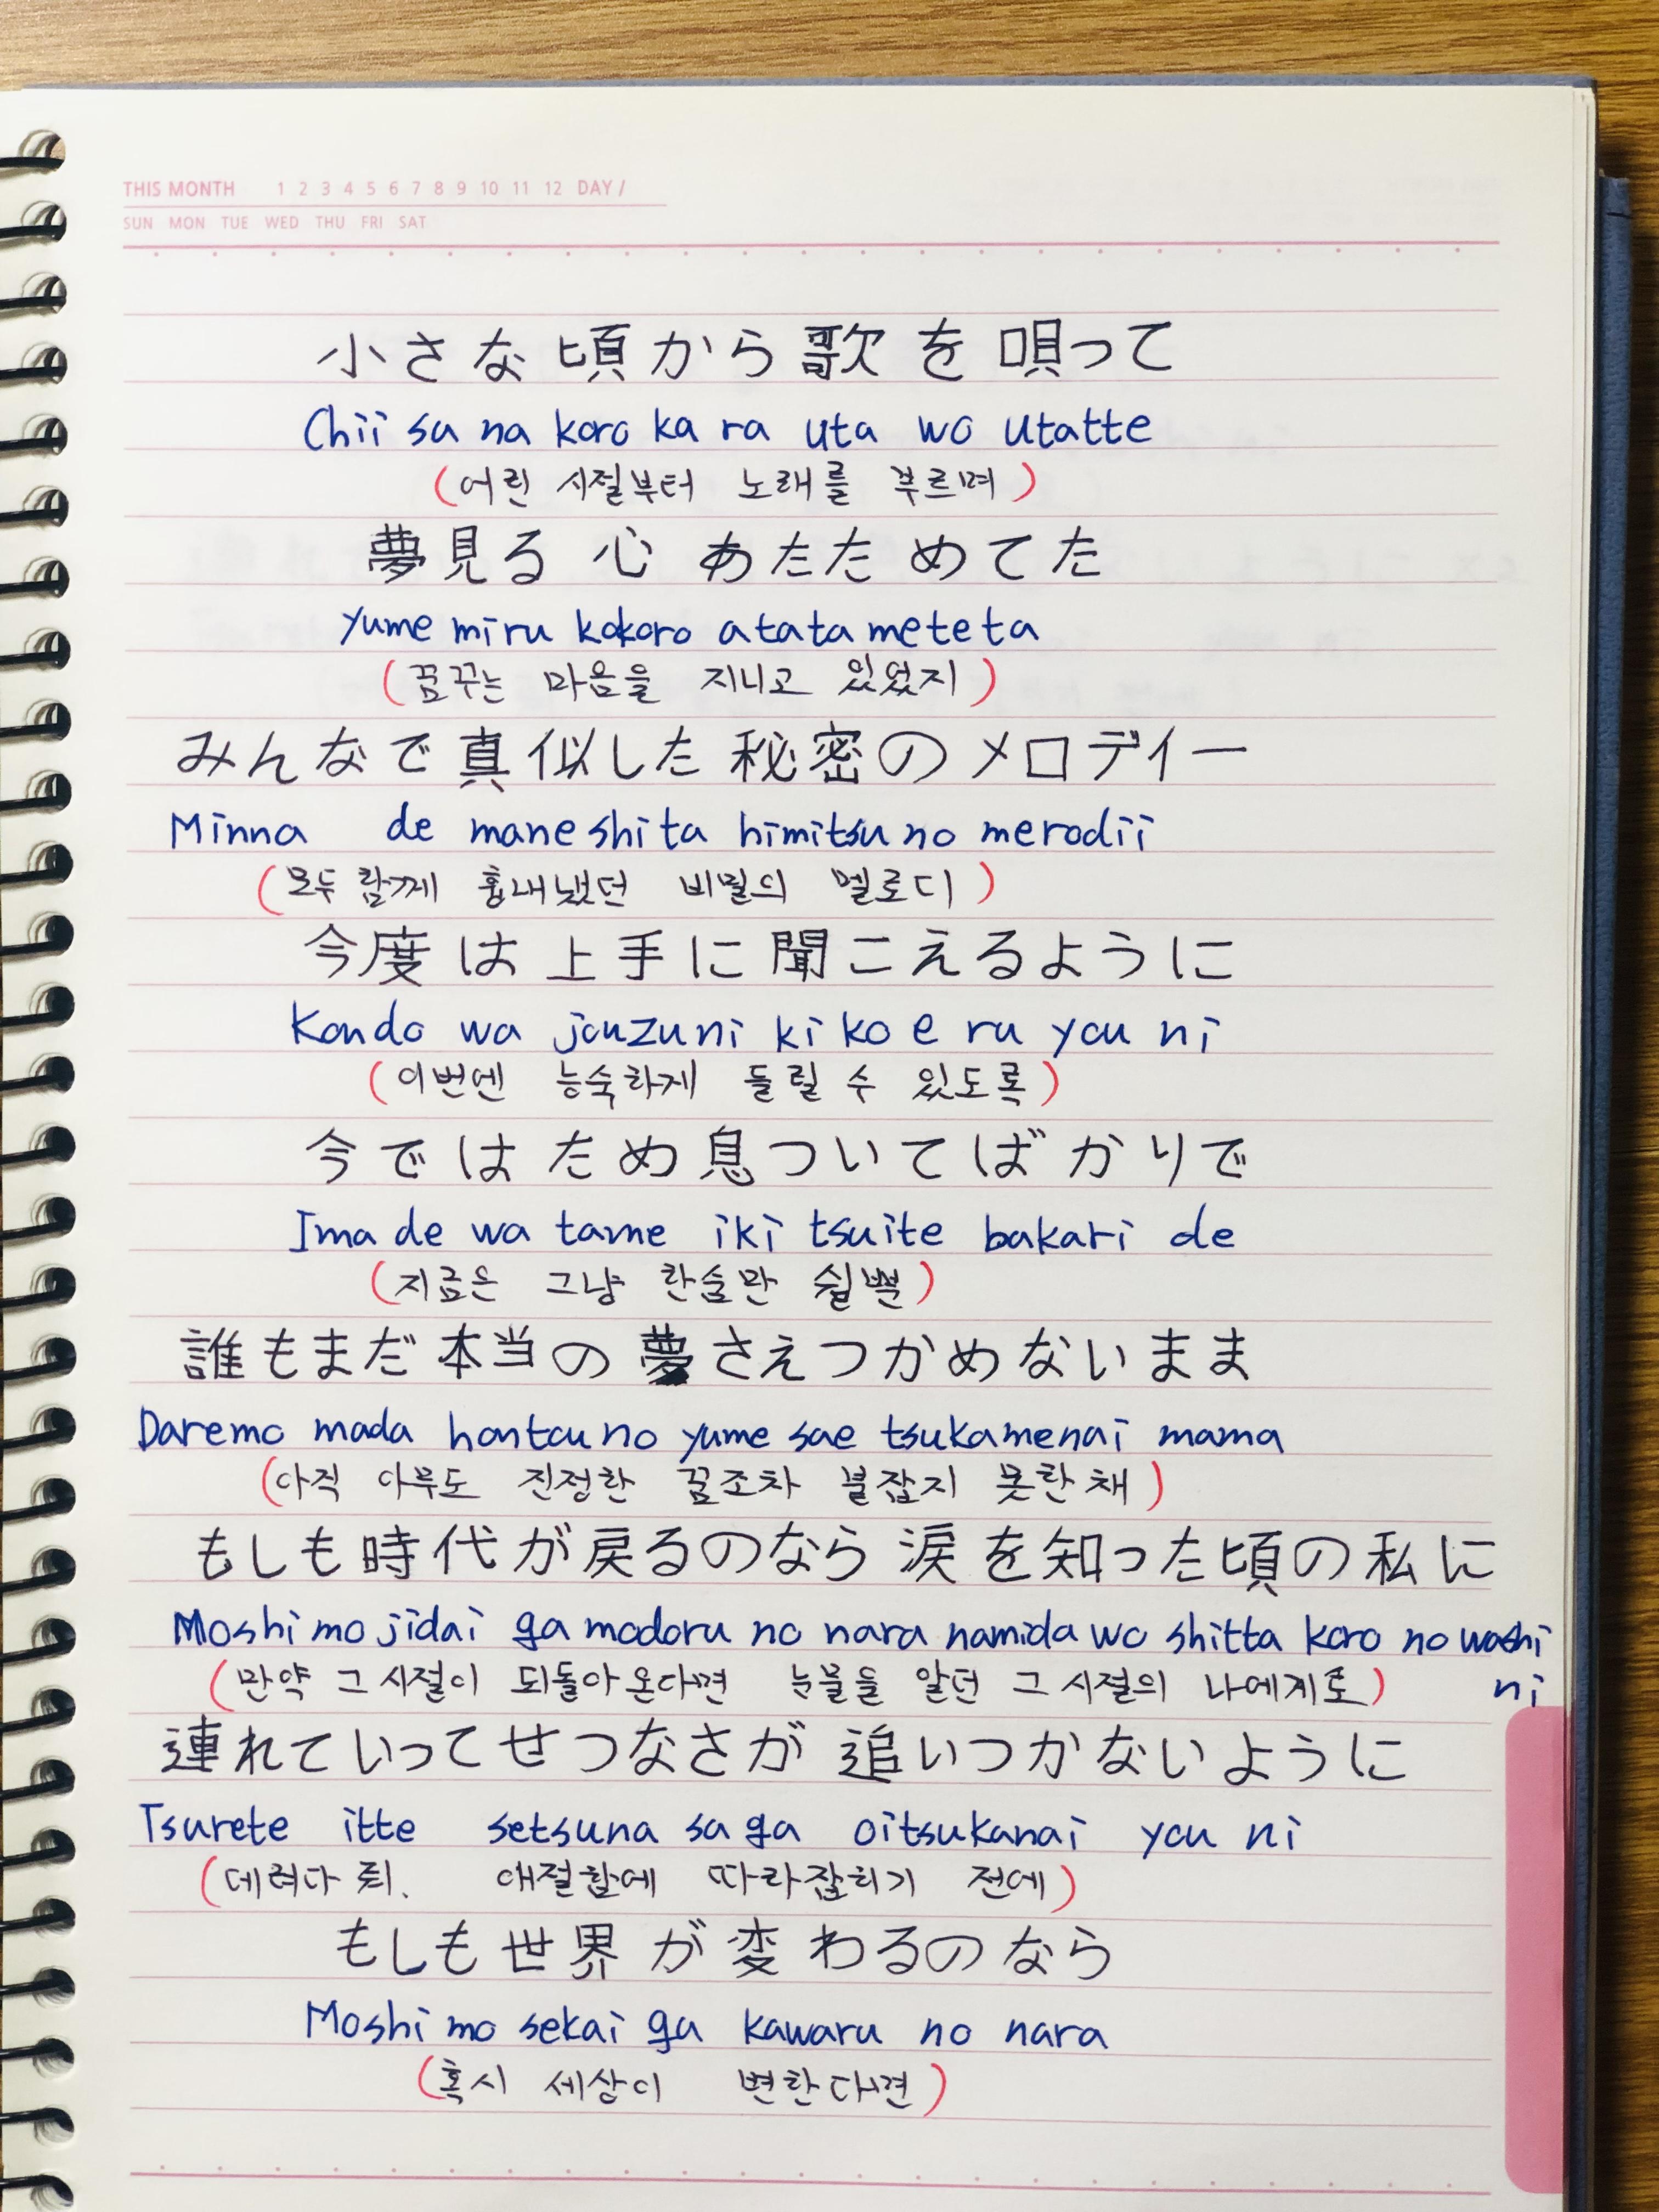 THIS MONTH 1 2 3 4 5 6 7 8 9 10 11 12 DAY /
SUN MON TUE WED THU FRI SAT
小さな頃から歌を唄って
Chii sa na koro ka ra uta wo utatte
(어린 시절부터 노래를 부르며)
夢見る心あたためてた
Yume miru kokoro atatameteta
(꿈꾸는 마음을 지니고 있었지)
みんなで真似した秘密のメロディー
Minna de maneshita himitsu no merodii
(모두 함께 흉내냈던 비밀의 멜로디)
今度は上手に聞こえるように
Kondo wa jouzuni ki ko e ru you ni
(이번엔 능숙하게 들릴 수 있도록)
今ではため息ついてばかりで
Ima de wa tame iki tsuite bakari de
(지금은 그냥 한숨만 쉴뿐)
誰もまだ本当の夢さえつかめないまま
Daremo mada hontou no yume sae tsukamenai mama
(아직 아무도 진정한 꿈조차 붙잡지 못한 채)
もしも時代が戻るのなら涙を知った頃の私に
Moshi mo jidai ga modoru no nara namida wo shitta koro no washi
(만약 그 시절이 되돌아온다면 눈물을 알던 그 시절의 나에게로) ni
連れていってせつなさが追いつかないように
Tsurete itte setsuna sa ga oitsukanai you ni
(데려다 줘. 애절함에 따라잡히기 전에)
もしも世界が変わるのなら
Moshi mo sekai ga kawaru no nara
(혹시 세상이 변한다면)